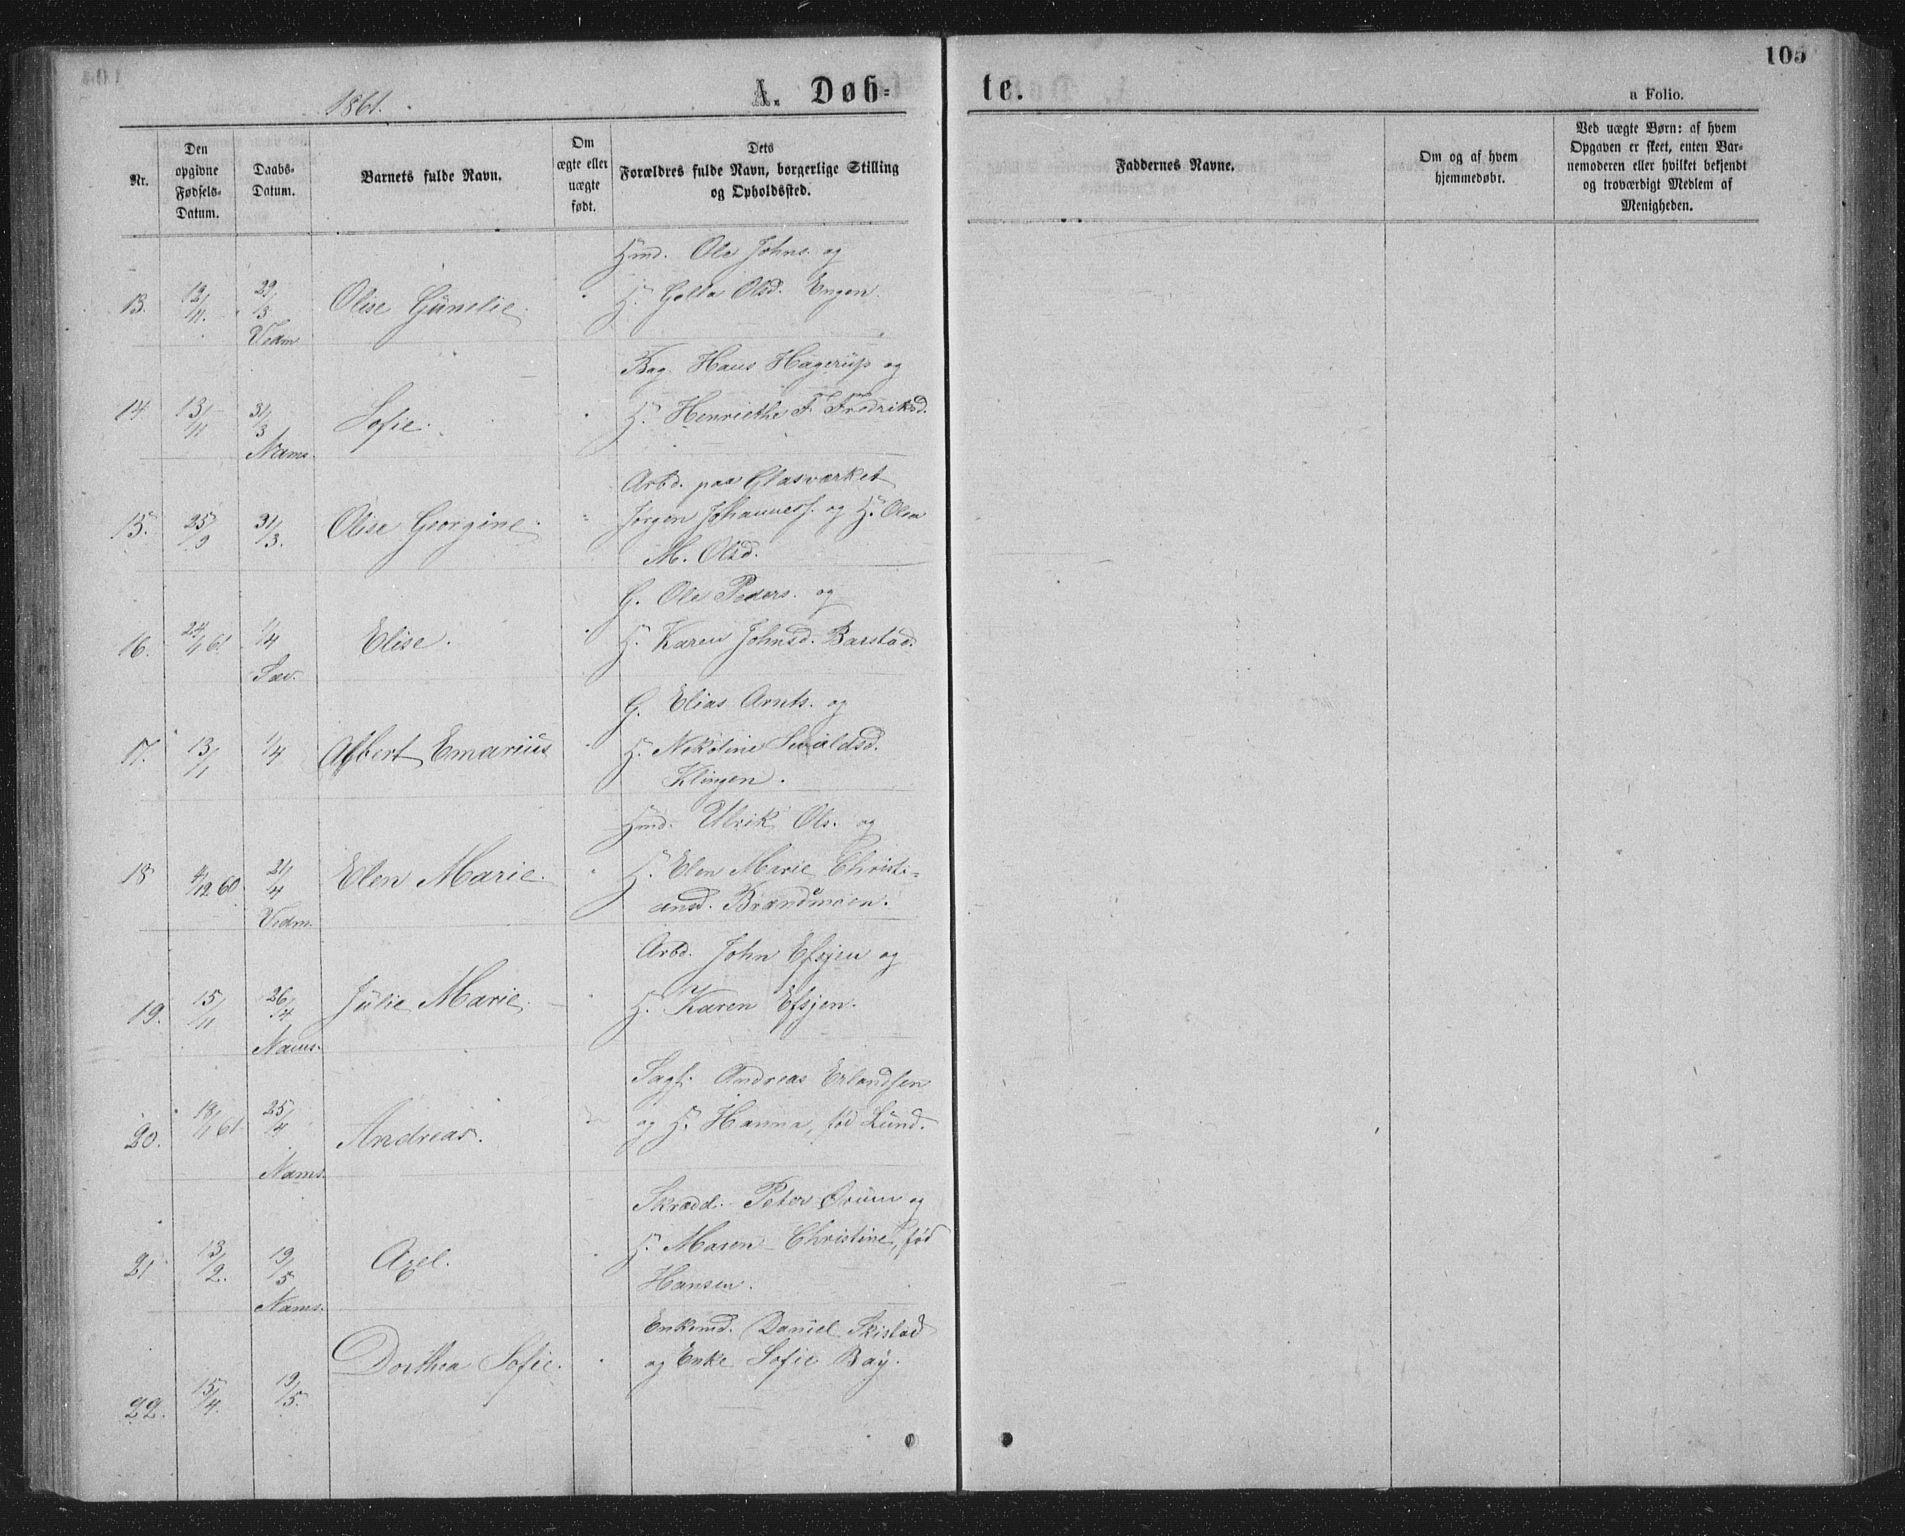 105
1861.
A. Døb-
te.
a Folio.
Nr.
Den
opgivne
Fødsels-
Datum.
Daabs-
Datum.
Barnets fulde Navn.
Om
ægte eller
uægte
født.
Dets
Forældres fulde Navn, borgerlige Stilling
og Opholdssted.
Faddernes Navne.
Om og af hvem
hjemmedøbt.
Ved uægte Børn: af hvem
Opgaven er skeet, enten Bar-
nemoderen eller hvilket bekjendt
og troværdigt Medlem af
Menigheden.
Hmd. Ole Johns. og
13. 12/11. 29/3 Olise Gunelie. H. Golla Olsd. Engen.
Vedm
Bag. Hans Hagerup og
14 13/11 31/3 Sofie. H. Henriethe F. Fredriksd.
Nams.
Arbd. paa Glasværket
15. 25/9 31/3. Olise Georgine. Jørgen Johannesf. og H. Olea
M. Olsd.
G. Ole Peders. og
16. 24/1 61 1/4 Elise. H. Karen Johnsd. Barstad.
Sav.
G. Elias Arnts. og
17. 13/1 1/4 Albert Emarius H. Nekoline Sivaldsd.
Klingen.
Hmd. Ulrik Ols. og
18 4/12 60. 21/4 Elen Marie. H. Elen Marie Christi-
Vedm. ansd. Brændmoen.
Arbd. John Efsjen og
19. 15/11 26/4 Julie Marie. H. Karen Efsjen.
Nams.
Sagf. Andreas Erlandsen
20. 18/1 61 25/4 Andreas. og H. Hanna, fød Lund.
Nams.
Skrædd. Peter Ørum og
21 13/2. 19/5 Axel. H. Maren Christine, fød
Nams. Hansen.
Enkemd. Daniel Skistad
Dorthea Sofie. og Enke Sofie Bay.
22. 15/4. 19/5.